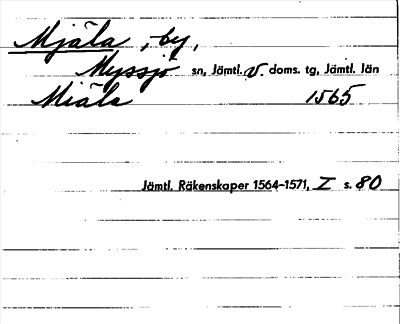 Mjäla, -by,
Myssjö sn, Jämtl. v. doms. tg, Jämtl. län
Miäla 1565
Jämtl. Räkenskaper 1564-1571, I s. 80